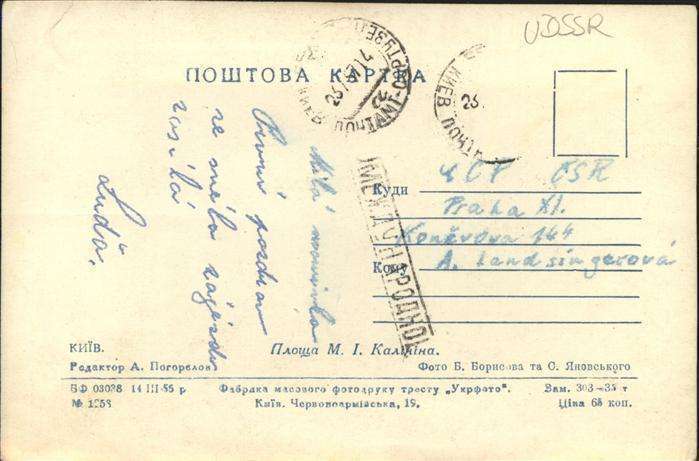 UDSSR
ПОШТОВА КАРТКА
КИЕВ ПОЧТАМТ
23
КИЕВ ПОЧТА
23.
МЕЖДУНАРОДНОЕ
Milá maminko
První pozdrav
ze
zasílá
Luďa.
Куди ЧСР ČSR
Praha XI.
Koněvova 144
Кому A. Landsingerová
КИЇВ.
Площа М. І. Калініна.
Редактор А. Погорелов
Фото Б. Борисова та С. Яновського
БФ 03028 14 III-55 р.
Фабрика масового фотодруку тресту „Укрфото".
Зам. 303—35 т
№ 1358
Київ. Червоноармійська, 19.
Ціна 68 коп.